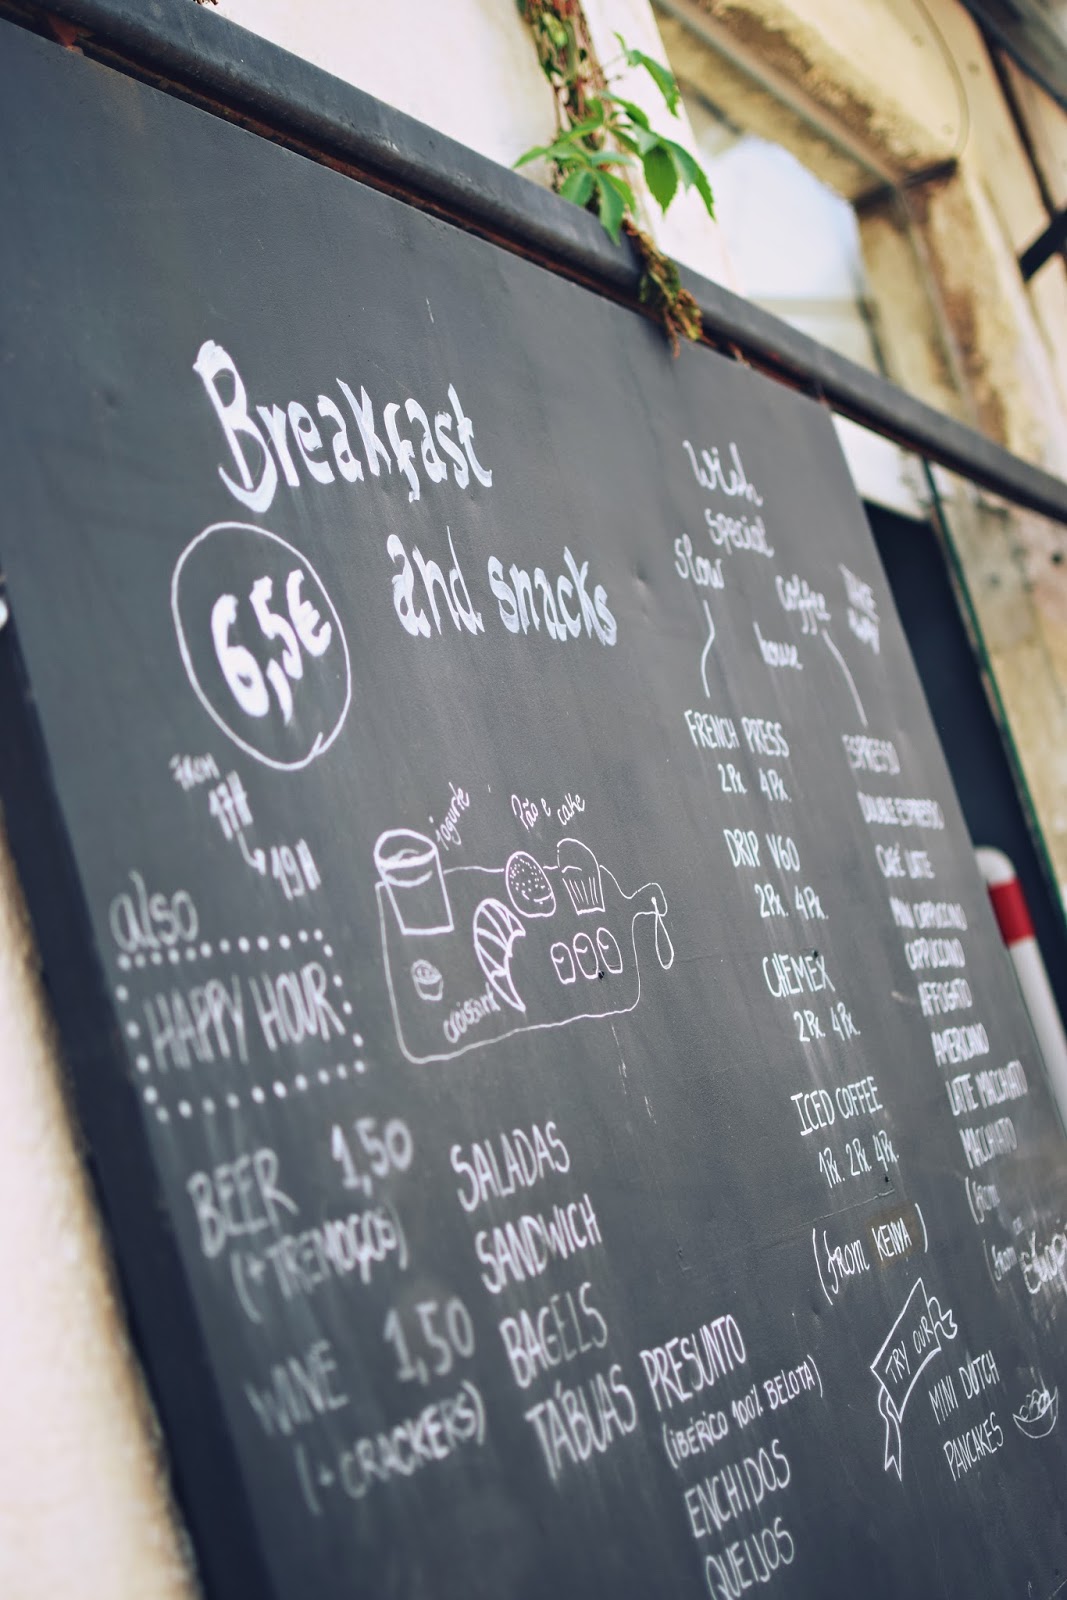 Breakfast
and snacks
6,5€
FROM
17H
19H
also
HAPPY HOUR
BEER 1,50
(+TREMOÇOS)
WINE 1,50
(+CRACKERS)
iogurte
Pão e
cake
croissant
SALADAS
SANDWICH
BAGELS
TÁBUAS
PRESUNTO
(IBÉRICO 100% BELOTA)
ENCHIDOS
QUEIJOS
special
slow
coffee
house
TAKE
away
FRENCH PRESS
2Px 4Px.
DRIP V60
2Px. 4Px.
CHEMEX
2Px. 4Px.
ICED COFFEE
1Px. 2Px. 4Px.
(from KENYA)
ESPRESSO
DOUBLE ESPRESSO
CAFÉ LATTE
MINI CAPPUCCINO
CAPPUCCINO
AFFOGATO
AMERICANO
LATTE MACCHIATO
MACCHIATO
(from
TRY OUR
MINI DUTCH
PANCAKES